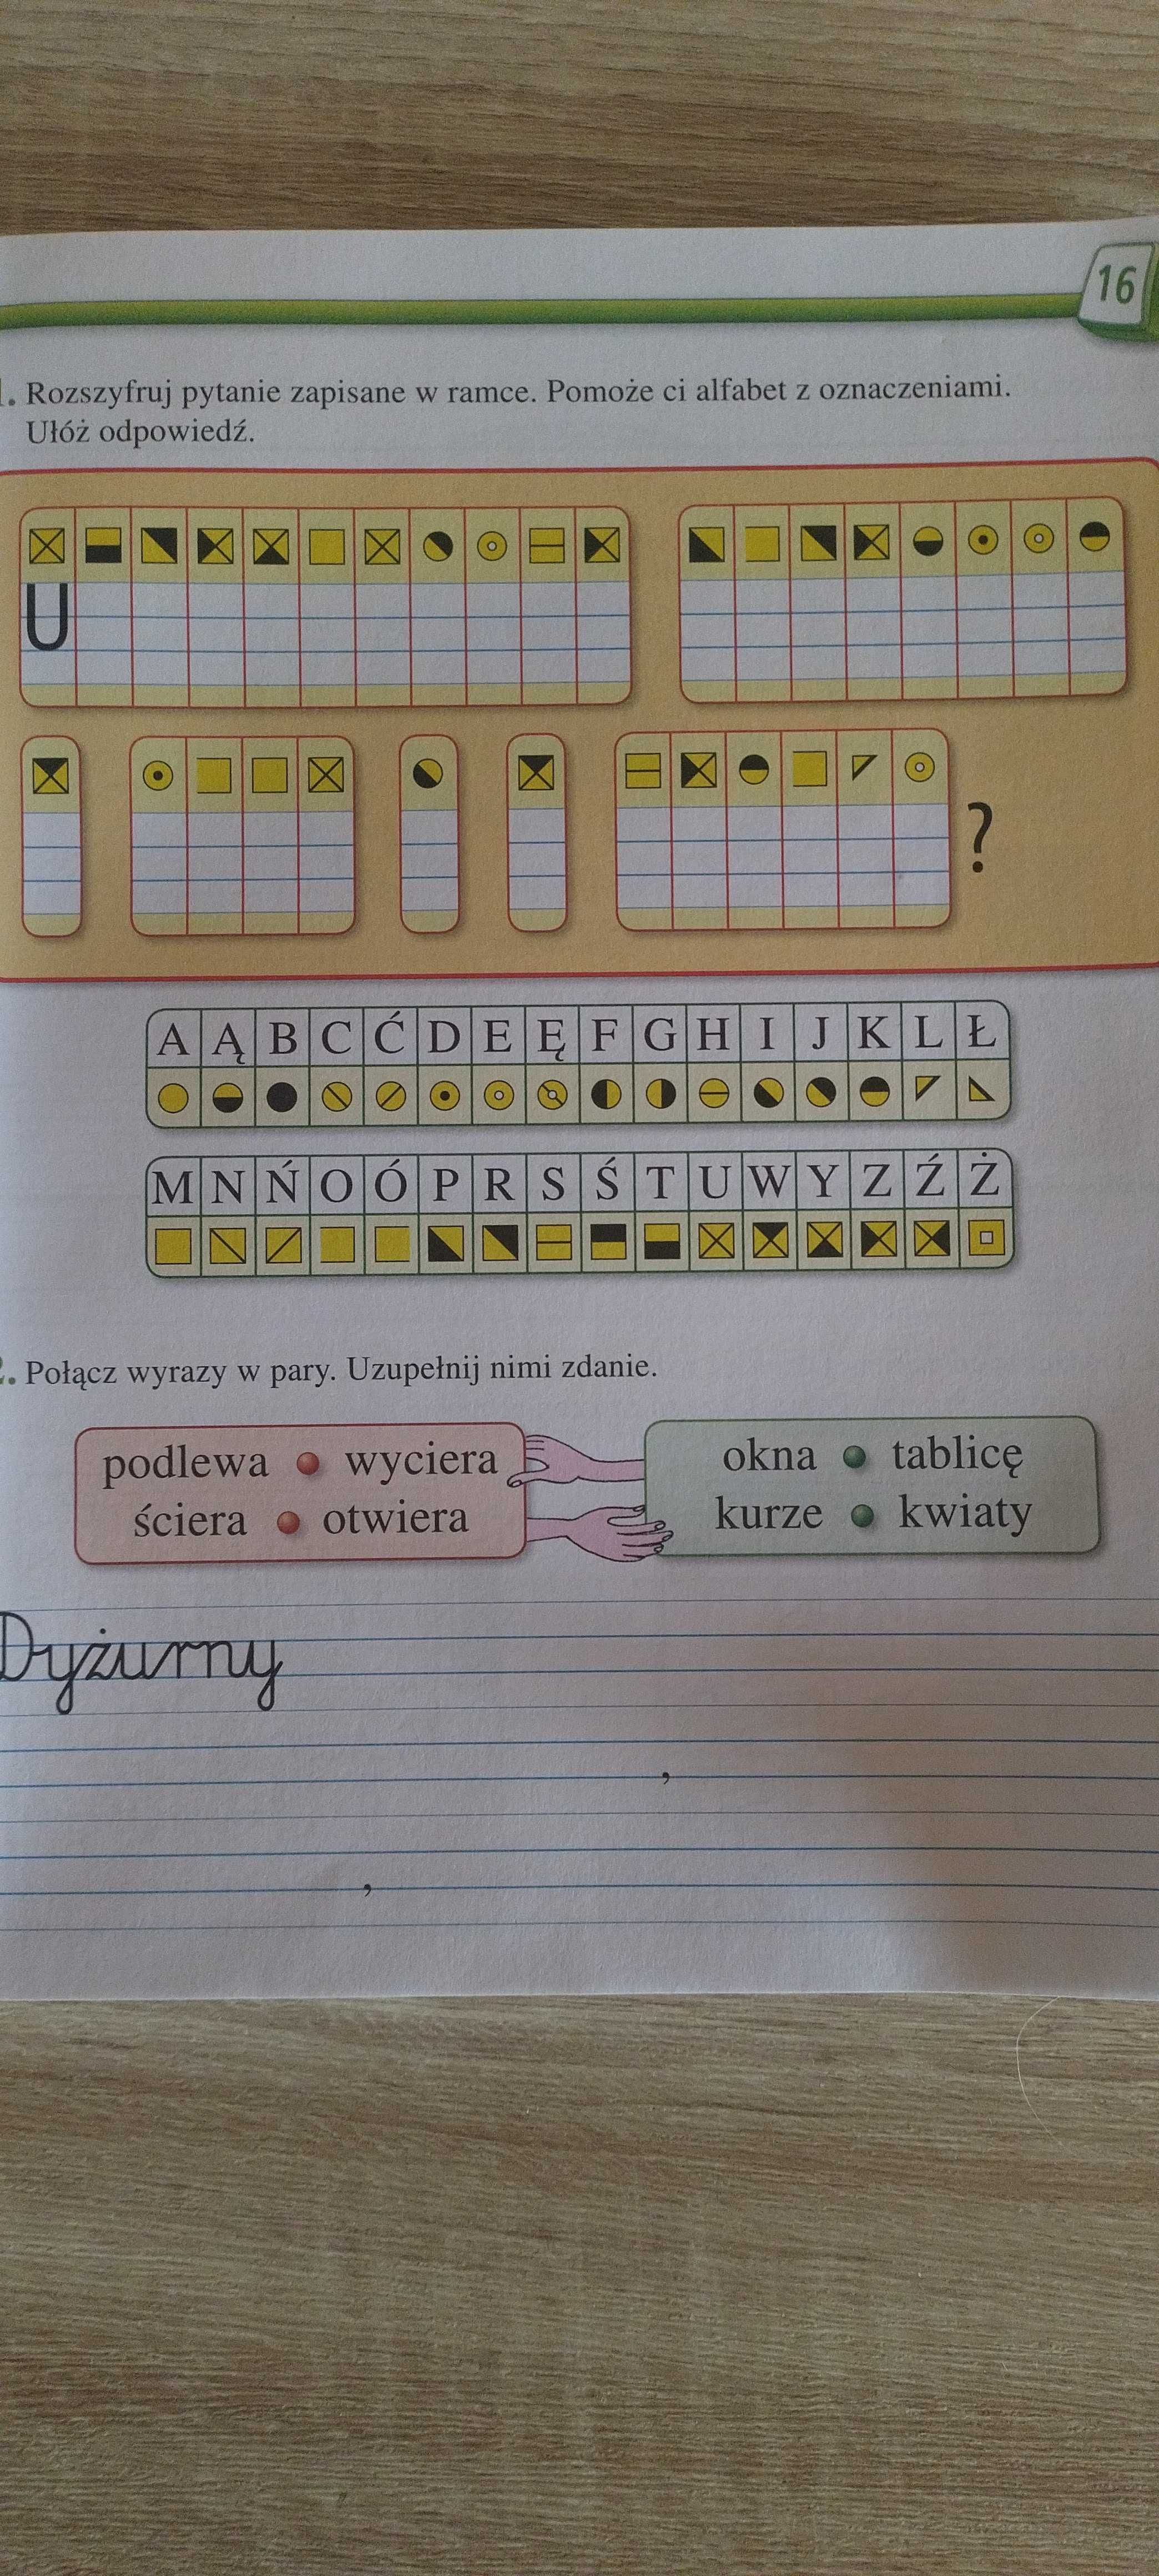 16
. Rozszyfruj pytanie zapisane w ramce. Pomoże ci alfabet z oznaczeniami.
Ułóż odpowiedź.
U
?
A Ą B C Ć D E Ę F G H I J K L Ł
M N Ń O Ó P R S Ś T U W Y Z Ź Ż
. Połącz wyrazy w pary. Uzupełnij nimi zdanie.
podlewa • wyciera
ściera • otwiera
okna • tablicę
kurze • kwiaty
Dyżurny
,
,